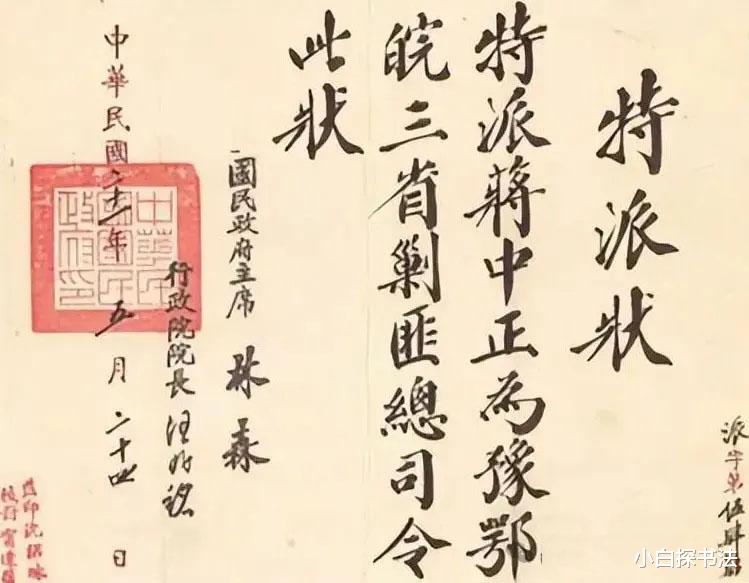 派字第伍肆
特派狀
特派蔣中正為豫鄂
皖三省剿匪總司令
此狀
國民政府主席 林森
行政院院長 汪兆銘
中華民國二十一年五月二十四日
中華民國國民政府印
監印沈
校對
小白探书法